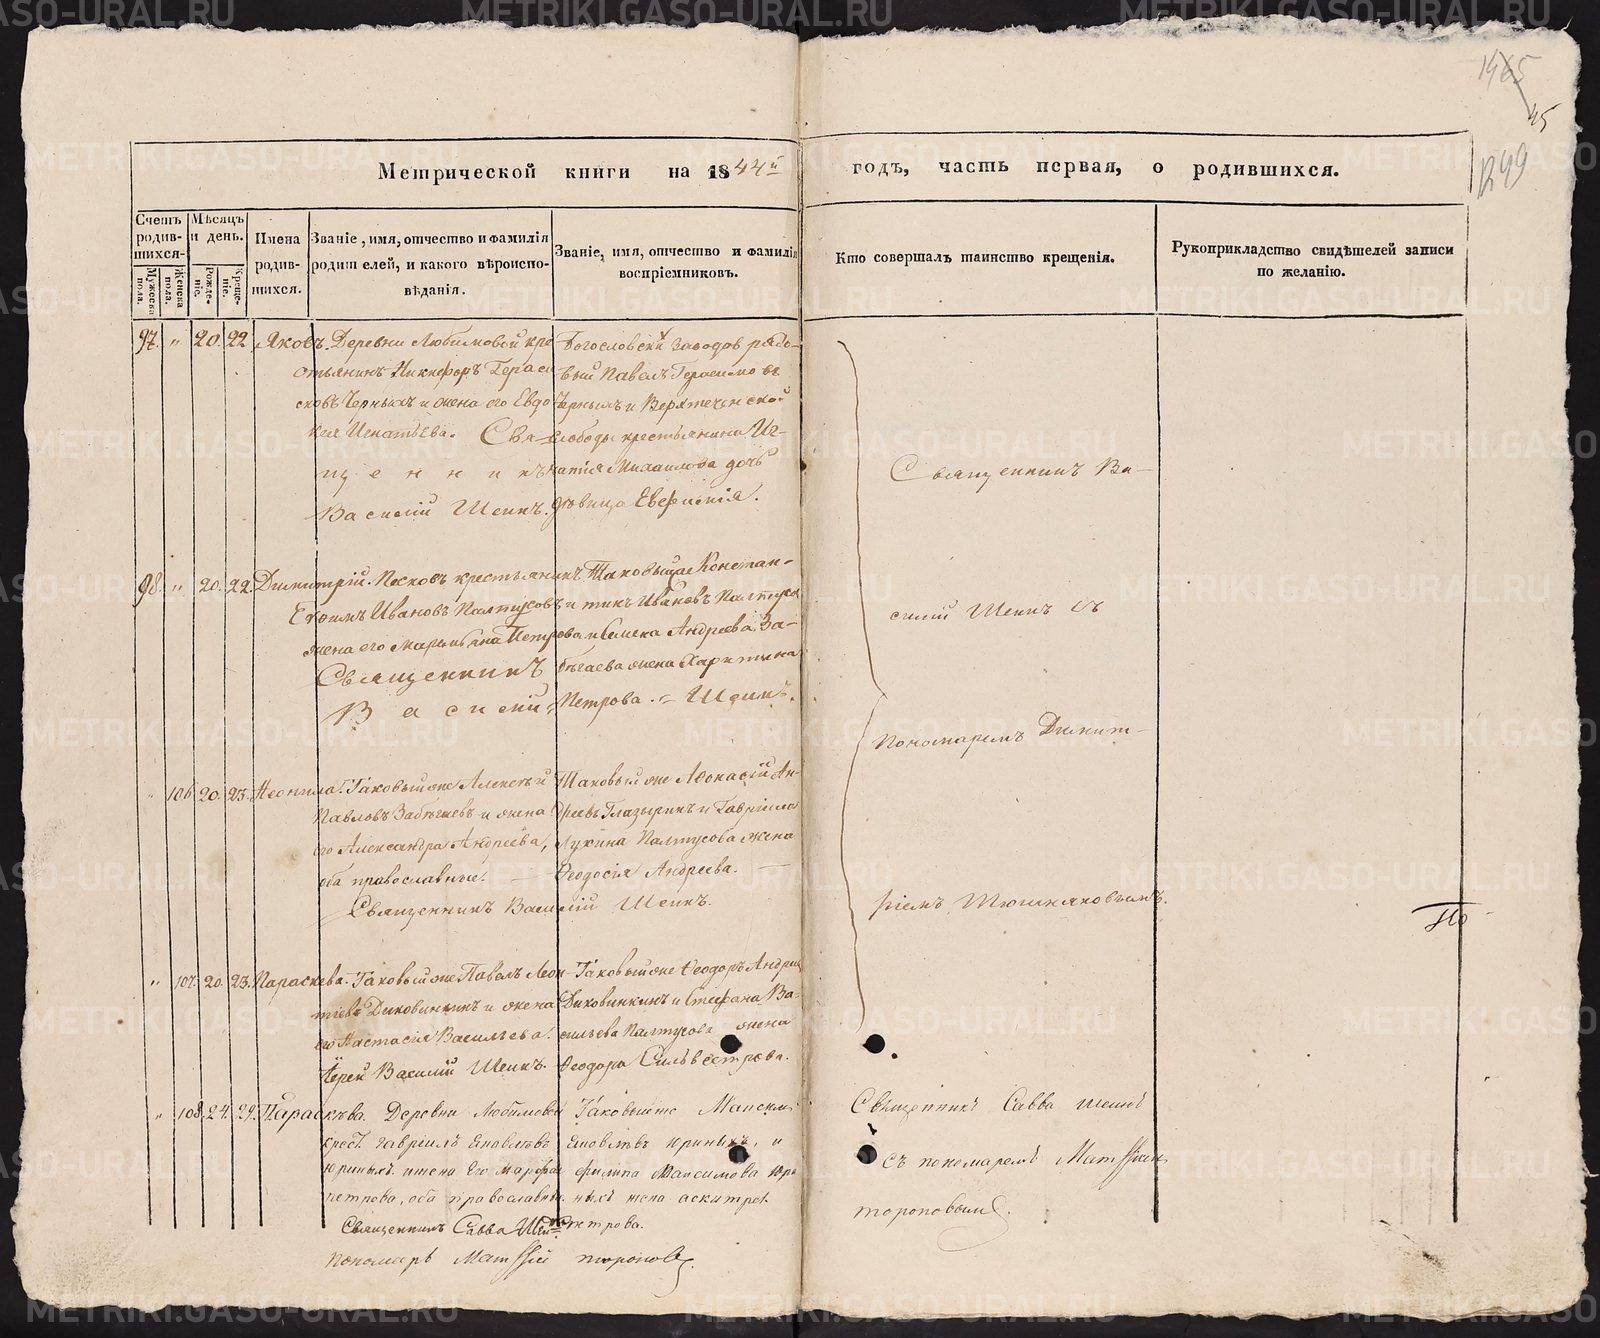 1465
45
1299
Метрической книги на 1844й годъ, часть первая, о родившихся.
Счетъ родив-шихся.
Мужеска пола.
Женска пола.
Мѣсяцъ и день.
Рожде-ніе.
Креще-ніе.
Имена родив-шихся.
Званіе, имя, отчество и фамилія родителей, и какого вѣроиспо-вѣданія.
Званіе, имя, отчество и фамилія воспріемниковъ.
Кто совершалъ таинство крещенія.
Рукоприкладство свидѣтелей записи по желанію.
97. „ 20. 22. Яковъ. Деревни Любимовой кре-
стьянинъ Никифоръ Гераси-
мовъ Черныхъ и жена его Евдо-
кия Игнатьева. Свя-
щенникъ
Василій Шеинъ.
Богословски заводов рядо-
вый Павелъ Герасимовъ
Черныхъ и Верятечинской
слободы крестьянина Иг-
натія Михаилова дочь
дѣвица Евфимія.
98. „ 20. 22. Димитрій. Песковъ крестьянинъ
Ефимъ Ивановъ Палтусовъ и
жена его Марьмьяна Петрова
Священникъ
Василій
Таковыйже Констан-
тинъ Ивановъ Палтусов
и Симеона Андреева За-
бѣгаева жена Харитина
Петрова. Шеинъ.
„ 106. 20. 23. Неонила. Таковыйже Алексѣй
Павловъ Забѣгаевъ и жена
его Александра Андреева,
оба православные.
Священникъ Василій Шеинъ.
Таковый же Афонасій Ан-
дреевъ Глазыринъ и Гавріила
Лукина Палтусова жена
Феодосія Андреева.
„ 107. 20. 23. Параскева. Таковыйже Павелъ Леон-
тіевъ Диковинкинъ и жена
его Настасія Васильева.
Іерей Василій Шеинъ.
Таковыйже Феодоръ Андреев
Диковинкинъ и Стефана Ва-
сильева Палтусова жена
Феодора Сильвестрова.
„ 108. 24. 29. Параскѣва. Деревни Любимовой
крест. Гавріилъ Яковлевъ
Юриныхъ и жена его Марфа
петрова, оба православны.
Священникъ Савва Шеинъ
пономарь Матѳій торопов.
Таковыйже Максим
Яковлевъ Юриныхъ, и
филипа Максимова Юри-
ныхъ жена
петрова.
Священникъ Ва-
силій Шеинъ съ
пономаремъ Димит-
ріемъ Тюшняковымъ.
По
Священникъ Савва Шеинъ
съ пономаремъ Матѳіем
тороповымъ.